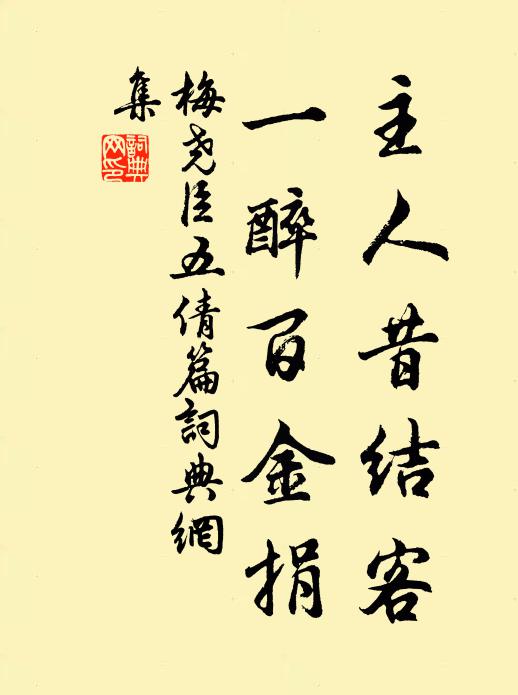 主人昔结客
一醉百金捐
梅尧臣五倩篇詞典網
集
詞典
网印